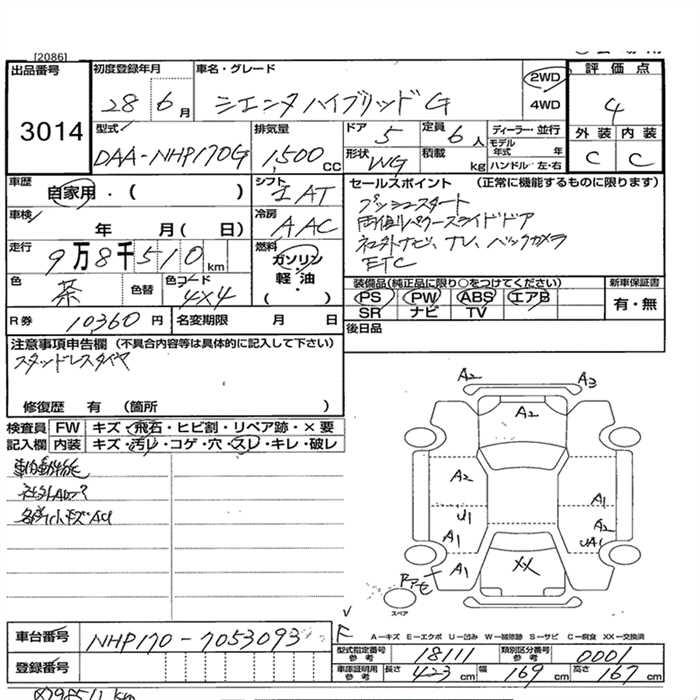 [2086]
出品番号 3014
初度登録年月 28 6月
車名・グレード シエンタハイブリッドG
2WD
4WD
評価点 4
外装 内装
C C
型式 DAA-NHP170G
排気量 1,500 CC
ドア 5
定員 6人
形状 WG
積載 kg
ディーラー・並行
モデル年式 年
ハンドル/左・右
車歴 自家用・( )
シフト IAT
車検 年 月( 日)
冷房 AAC
走行 9万8千510km
燃料 ガソリン
軽・油
( ・ )
色 茶
色替
色コード 4X4
R券 10360円
名変期限 月 日
セールスポイント (正常に機能するものに限ります)
プッシュスタート
両側パワースライドドア
社外ナビ、TV、バックカメラ
ETC
装備品(純正品に限り○をつけてください)
PS PW ABS エアB
SR ナビ TV
新車保証書
有・無
後日品
注意事項申告欄 (不具合内容等は具体的に記入して下さい)
スタッドレスタイヤ
修復歴 有 (箇所 )
検査員記入欄
FW キズ・飛石・ヒビ割・リペア跡・×要
内装 キズ・汚レ・コゲ・穴・スレ・キレ・破レ
A2 A3
A2
A2 A1
U1 A2
A1 UA1
A1 XX
スペア
A-キズ E-エクボ U-凹み W-補修跡 S-サビ C-腐食 XX-交換済
車台番号 NHP170-7053093
登録番号
型式指定番号参考 18111
類別区分番号参考 0001
車庫証明用参考 長さ 423cm 幅 169cm 高さ 167cm